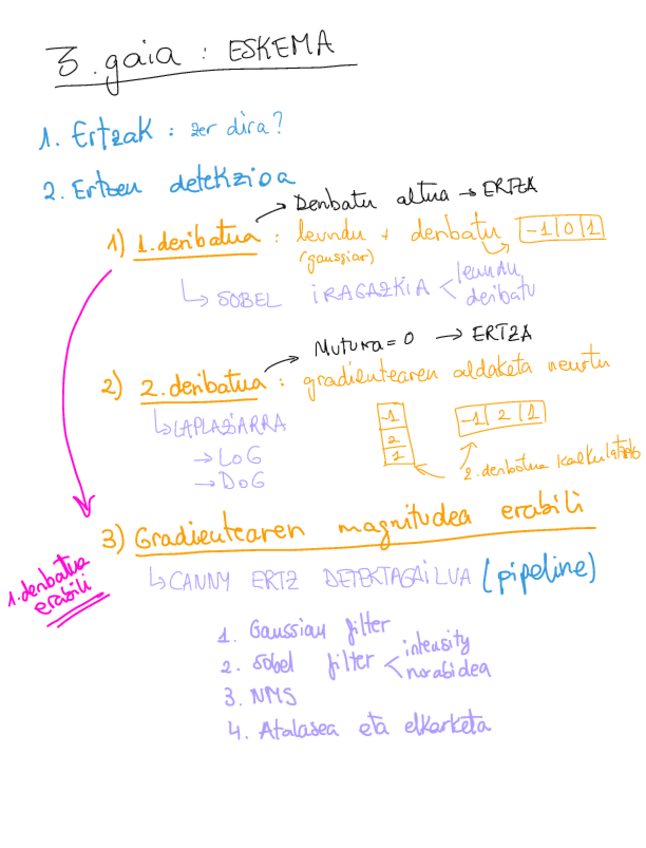 3. gaia : ESKEMA
1. Ertzak : zer dira?
2. Ertzen detekzioa
→ Deribatu altua → ERTZA
1) 1. deribatua : leundu + deribatu -1|0|1
(gaussiar)
↳ SOBEL IRAGAZKIA < leundu
deribatu
→ Mutura = 0 → ERTZA
2) 2. deribatua : gradientearen aldaketa neurtu
↳ LAPLAZIARRA
-1
2
1
-1|2|1
→ LoG
→ DoG
2. deribatua kalkulatzeko
3) Gradientearen magnitudea erabili
1. deribatua
erabili
↳ CANNY ERTZ DETEKTAGAILUA (pipeline)
1. Gaussian filter
2. Sobel filter < intensity
norabidea
3. NMS
4. Atalasea eta elkarketa